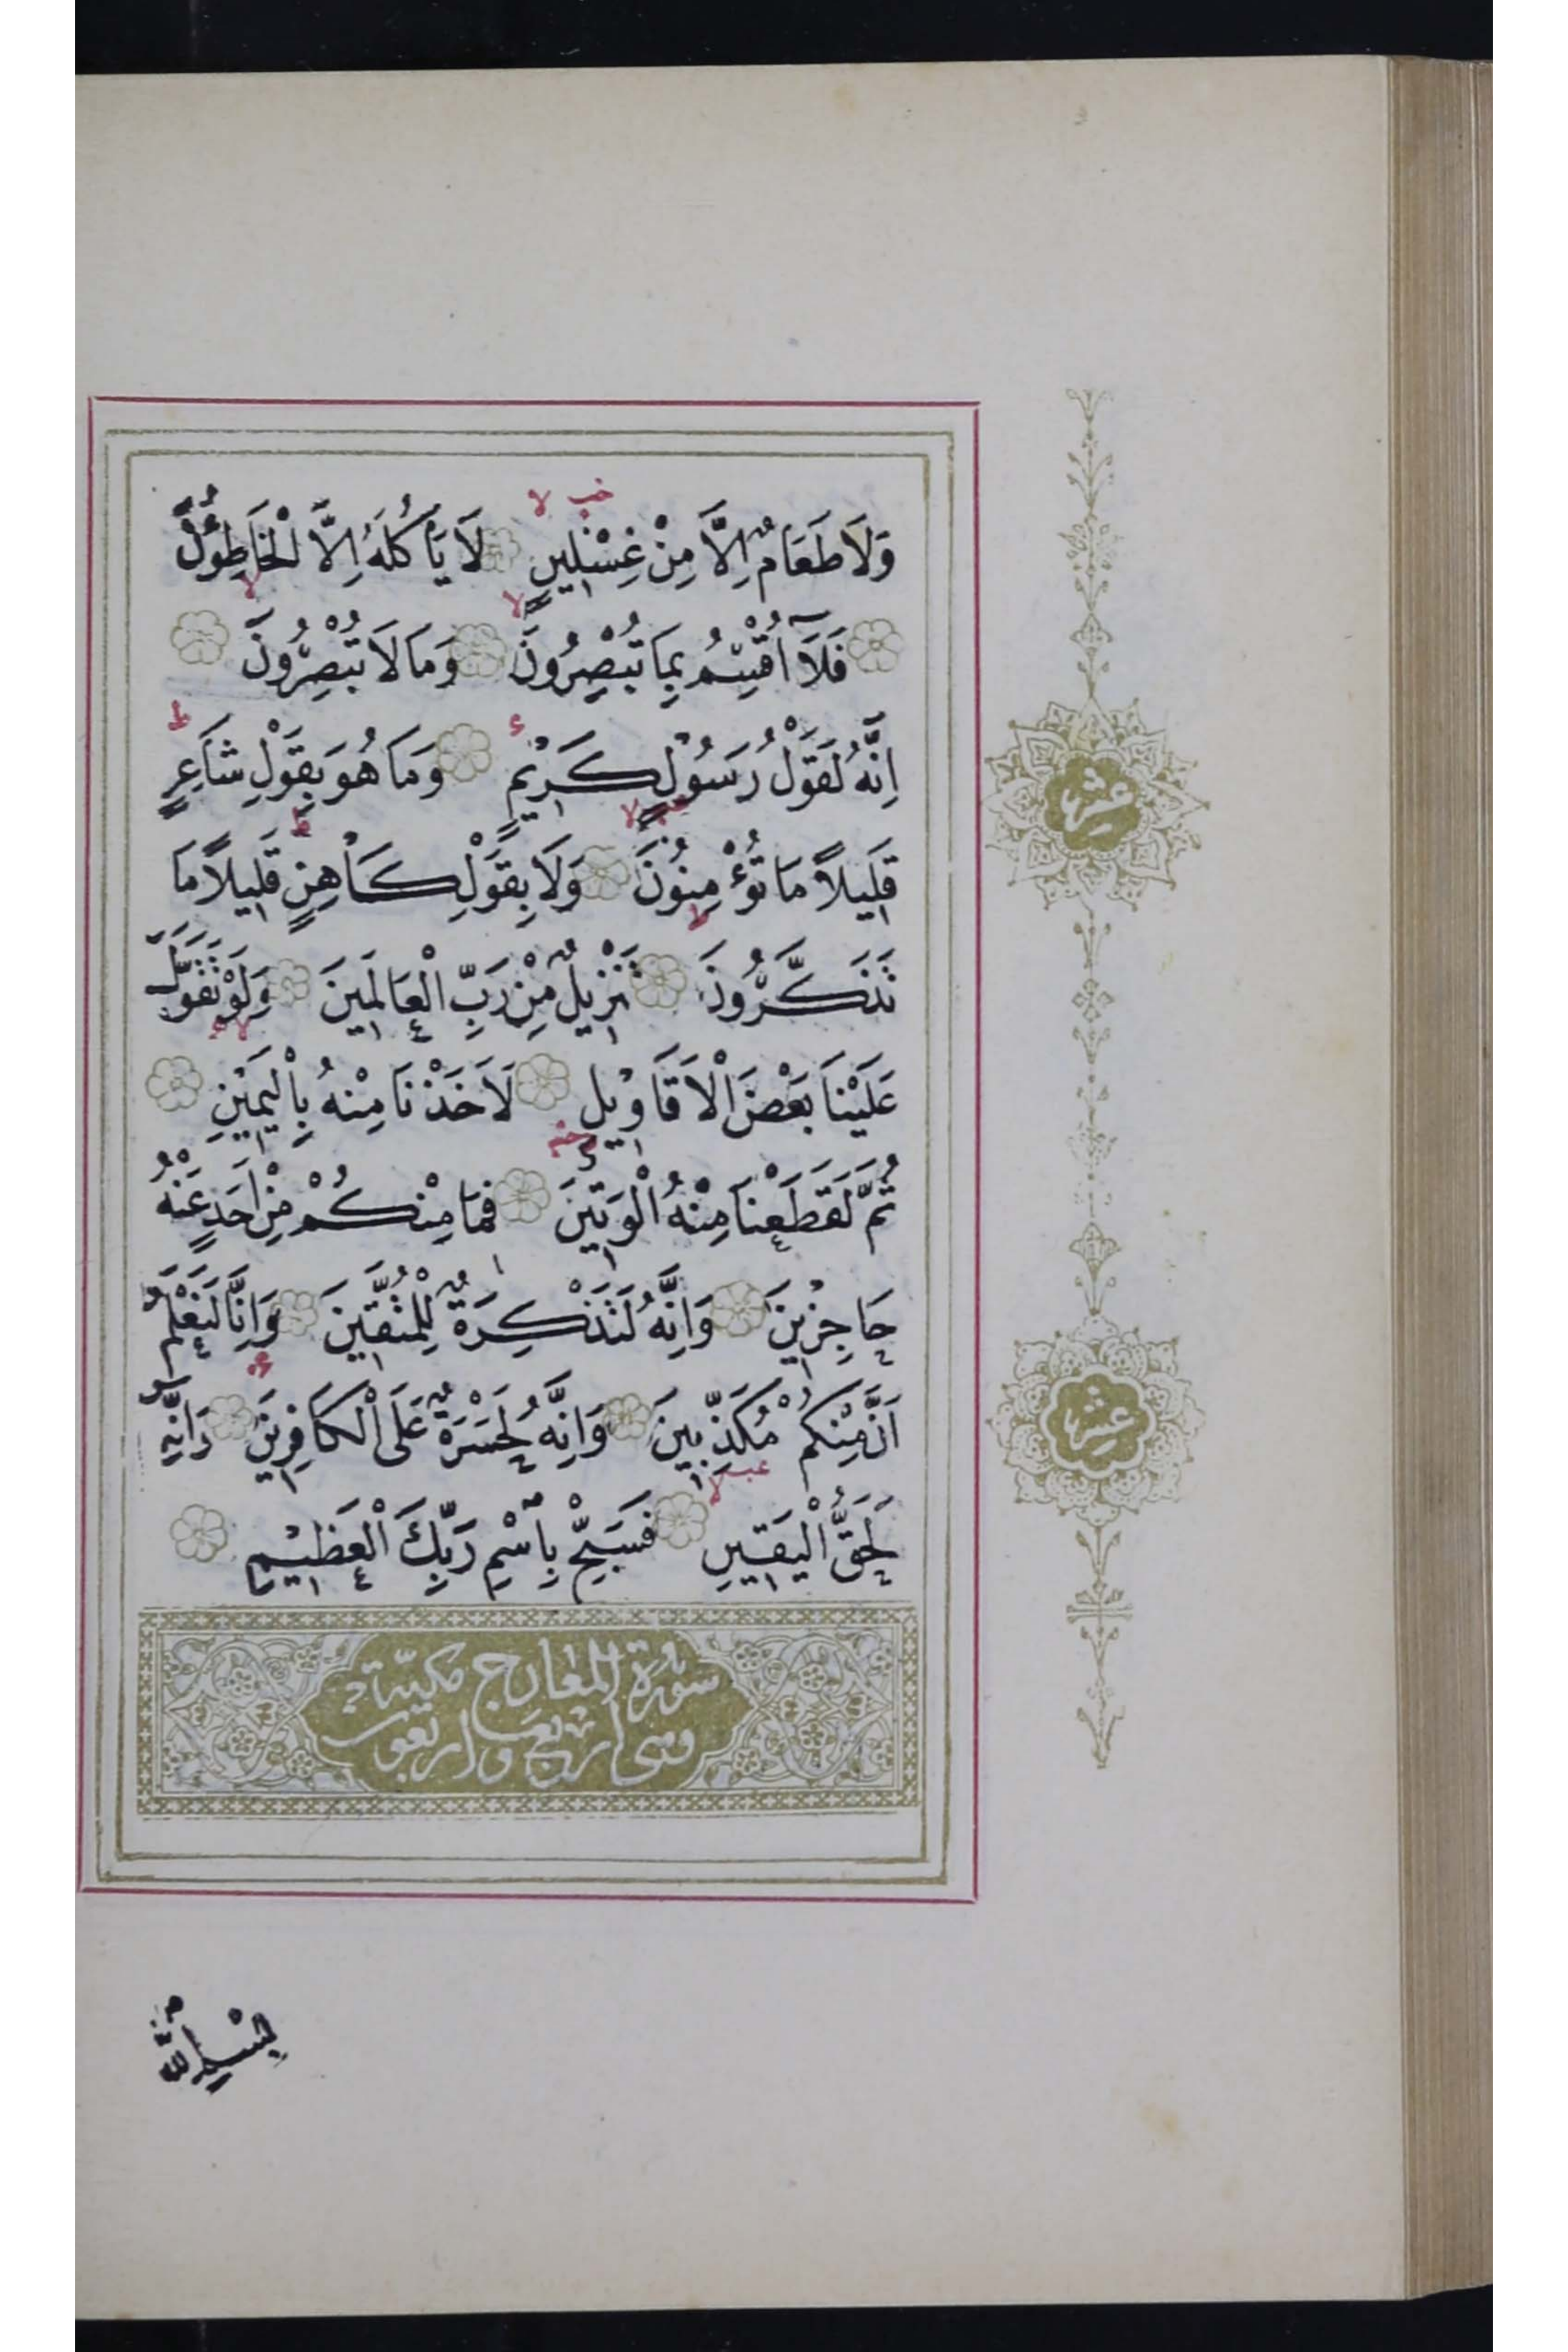 وَلَا طَعَامٌ اِلَّا مِنْ غِسْلِينٍ لَا يَأْكُلُهُ اِلَّا الْخَاطِؤُنَ
فَلَٓا اُقْسِمُ بِمَا تُبْصِرُونَ وَمَا لَا تُبْصِرُونَ
اِنَّهُ لَقَوْلُ رَسُولٍ كَرِيْمٍ وَمَا هُوَ بِقَوْلِ شَاعِرٍ
قَلِيلًا مَا تُؤْمِنُونَ وَلَا بِقَوْلِ كَاهِنٍ قَلِيلًا مَا
تَذَكَّرُونَ تَنْزِيلٌ مِنْ رَبِّ الْعَالَمِينَ وَلَوْ تَقَوَّلَ
عَلَيْنَا بَعْضَ الْاَقَاوِيْلِ لَاَخَذْنَا مِنْهُ بِالْيَمِيْنِ
ثُمَّ لَقَطَعْنَا مِنْهُ الْوَتِيْنَ فَمَا مِنْكُمْ مِنْ اَحَدٍ عَنْهُ
حَاجِزِيْنَ وَاِنَّهُ لَتَذْكِرَةٌ لِلْمُتَّقِيْنَ وَاِنَّا لَنَعْلَمُ
اَنَّ مِنْكُمْ مُكَذِّبِينَ وَاِنَّهُ لَحَسْرَةٌ عَلَى الْكَافِرِيْنَ وَاِنَّهُ
لَحَقُّ الْيَقِيْنِ فَسَبِّحْ بِاسْمِ رَبِّكَ الْعَظِيْمِ
سورة المعارج مكية
وهى اربع واربعون
عشر
عشر
بِسْمِ اللّٰهِ